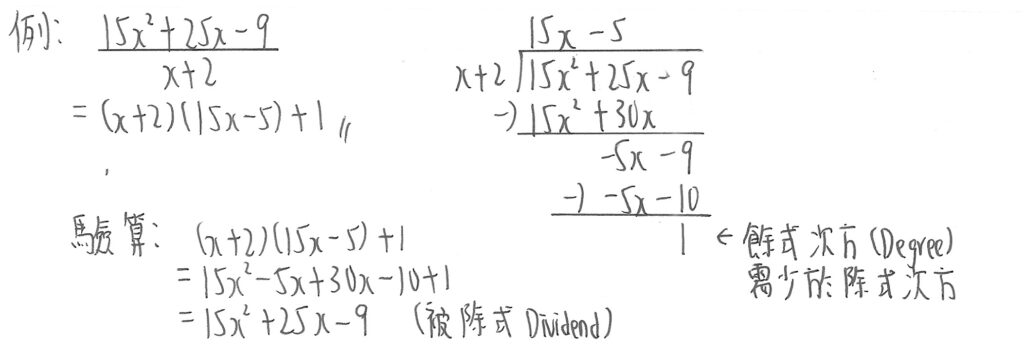 例: 15x²+25x-9
x+2
= (x+2)(15x-5)+1 〃
15x -5
x+2 15x²+25x-9
-) 15x²+30x
-5x -9
-) -5x -10
1 ← 餘式次方 (Degree)
需少於除式次方
驗算: (x+2)(15x-5)+1
= 15x²-5x+30x-10+1
= 15x²+25x-9 (被除式 Dividend)